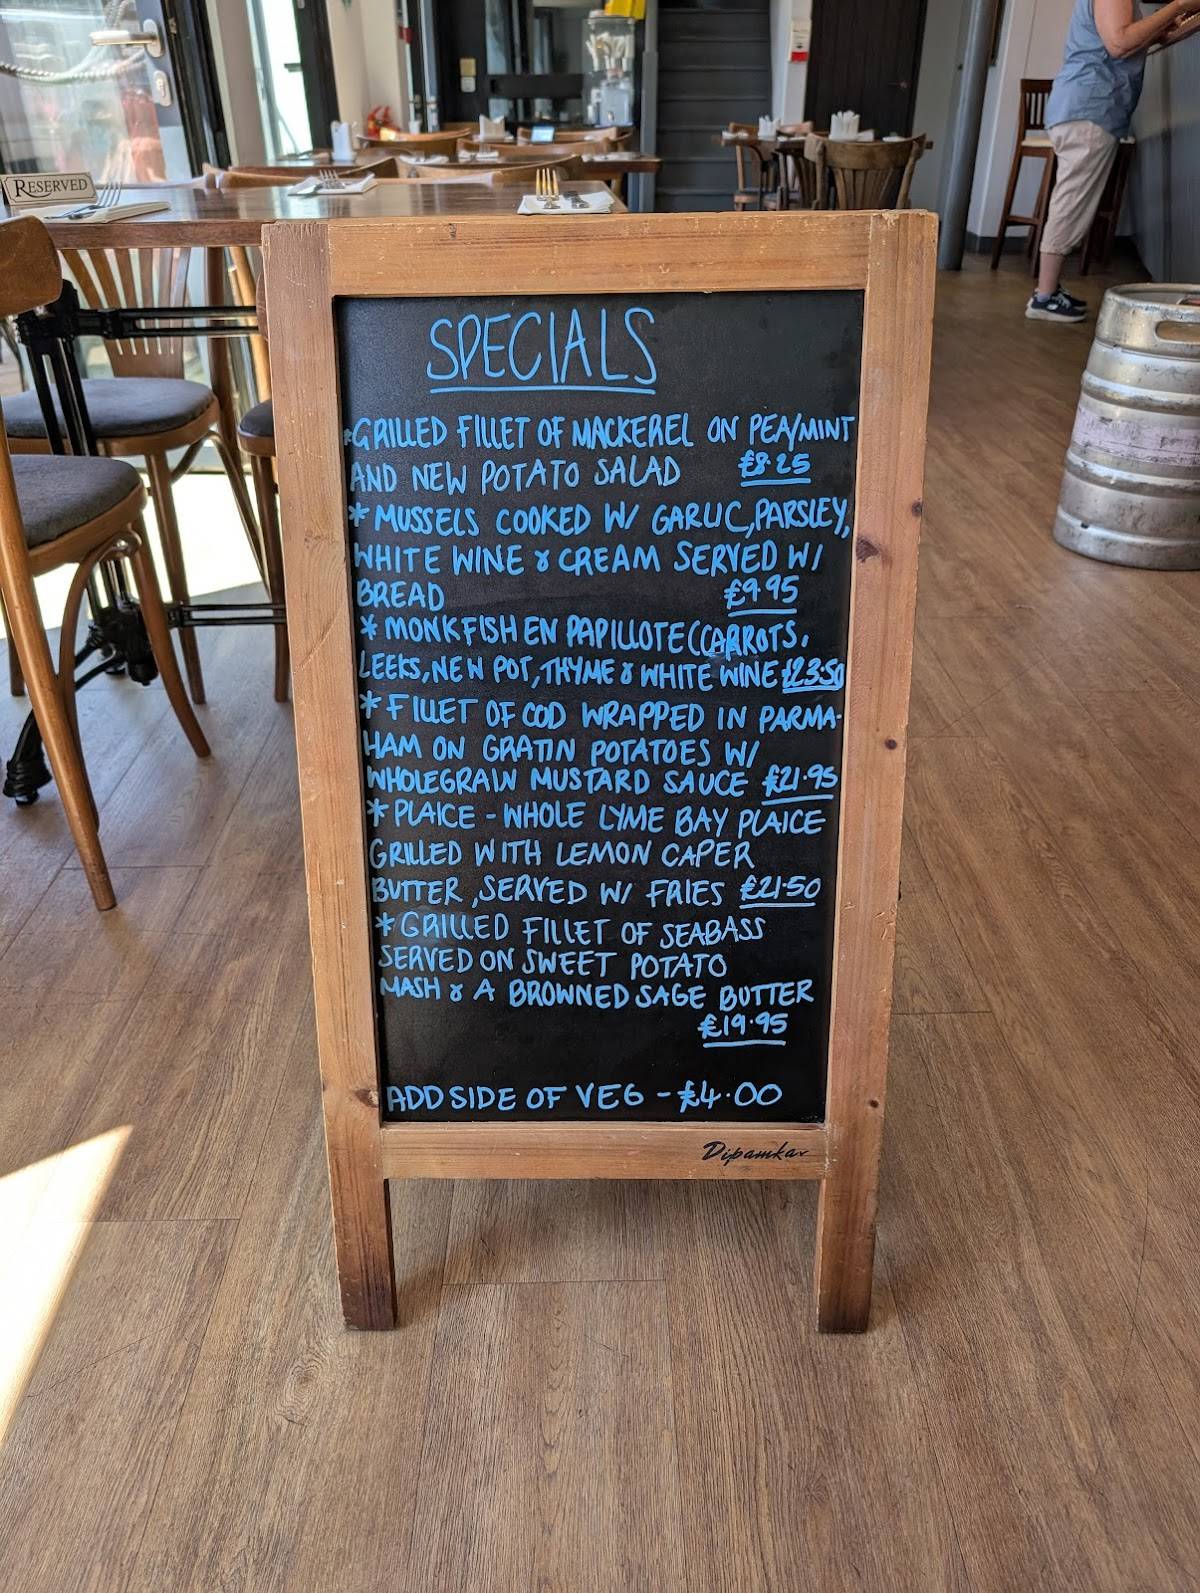 RESERVED
SPECIALS
*GRILLED FILLET OF MACKEREL ON PEA/MINT
AND NEW POTATO SALAD £8.25
* MUSSELS COOKED W/ GARLIC, PARSLEY,
WHITE WINE & CREAM SERVED W/
BREAD £9.95
* MONKFISH EN PAPILLOTE (CARROTS,
LEEKS, NEW POT, THYME & WHITE WINE £23.50
* FILLET OF COD WRAPPED IN PARMA-
HAM ON GRATIN POTATOES W/
WHOLEGRAIN MUSTARD SAUCE £21.95
* PLAICE - WHOLE LYME BAY PLAICE
GRILLED WITH LEMON CAPER
BUTTER, SERVED W/ FRIES £21.50
* GRILLED FILLET OF SEABASS
SERVED ON SWEET POTATO
MASH & A BROWNED SAGE BUTTER
£19.95
ADD SIDE OF VEG - £4.00
Dipamkar